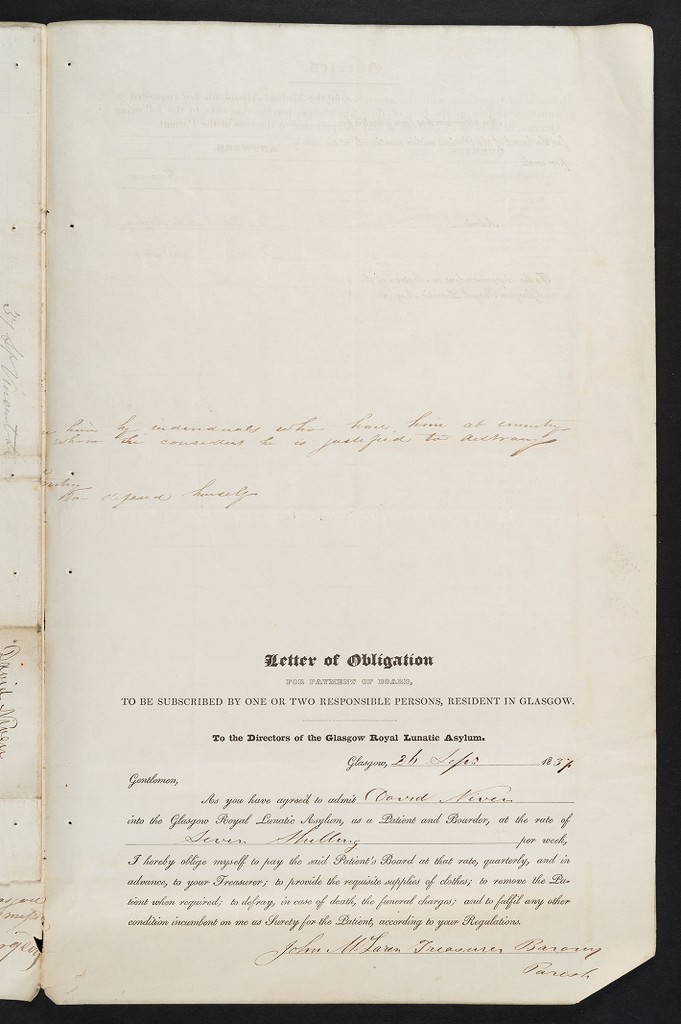 him by individuals who have him at enmity
whom he considers he is justified to destroy
to defend himself
37 St Vincent St
David Niven
Letter of Obligation
FOR PAYMENT OF BOARD,
TO BE SUBSCRIBED BY ONE OR TWO RESPONSIBLE PERSONS, RESIDENT IN GLASGOW.
To the Directors of the Glasgow Royal Lunatic Asylum.
Glasgow, 26 Sepr 1837
Gentlemen,
As you have agreed to admit David Niven
into the Glasgow Royal Lunatic Asylum, as a Patient and Boarder, at the rate of
Seven Shilling per week,
I hereby oblige myself to pay the said Patient's Board at that rate, quarterly, and in
advance, to your Treasurer; to provide the requisite supplies of clothes; to remove the Pa-
tient when required; to defray, in case of death, the funeral charges; and to fulfil any other
condition incumbent on me as Surety for the Patient, according to your Regulations.
John McLaren Treasurer Barony
Parish